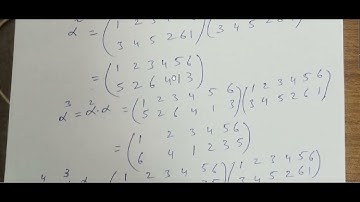 α² = (1 2 3 4 5 6) (
3 4 5 2 6 1 3 4 5 2 6 1
= (1 2 3 4 5 6)
5 2 6 4 1 3
α³ = α².α = (1 2 3 4 5 6) (1 2 3 4 5 6)
5 2 6 4 1 3 3 4 5 2 6 1
= (1 2 3 4 5 6)
6 4 1 2 3 5
4 3 (1 2 3 4 5 6) (1 2 3 4 5 6)
3 4 5 2 6 1